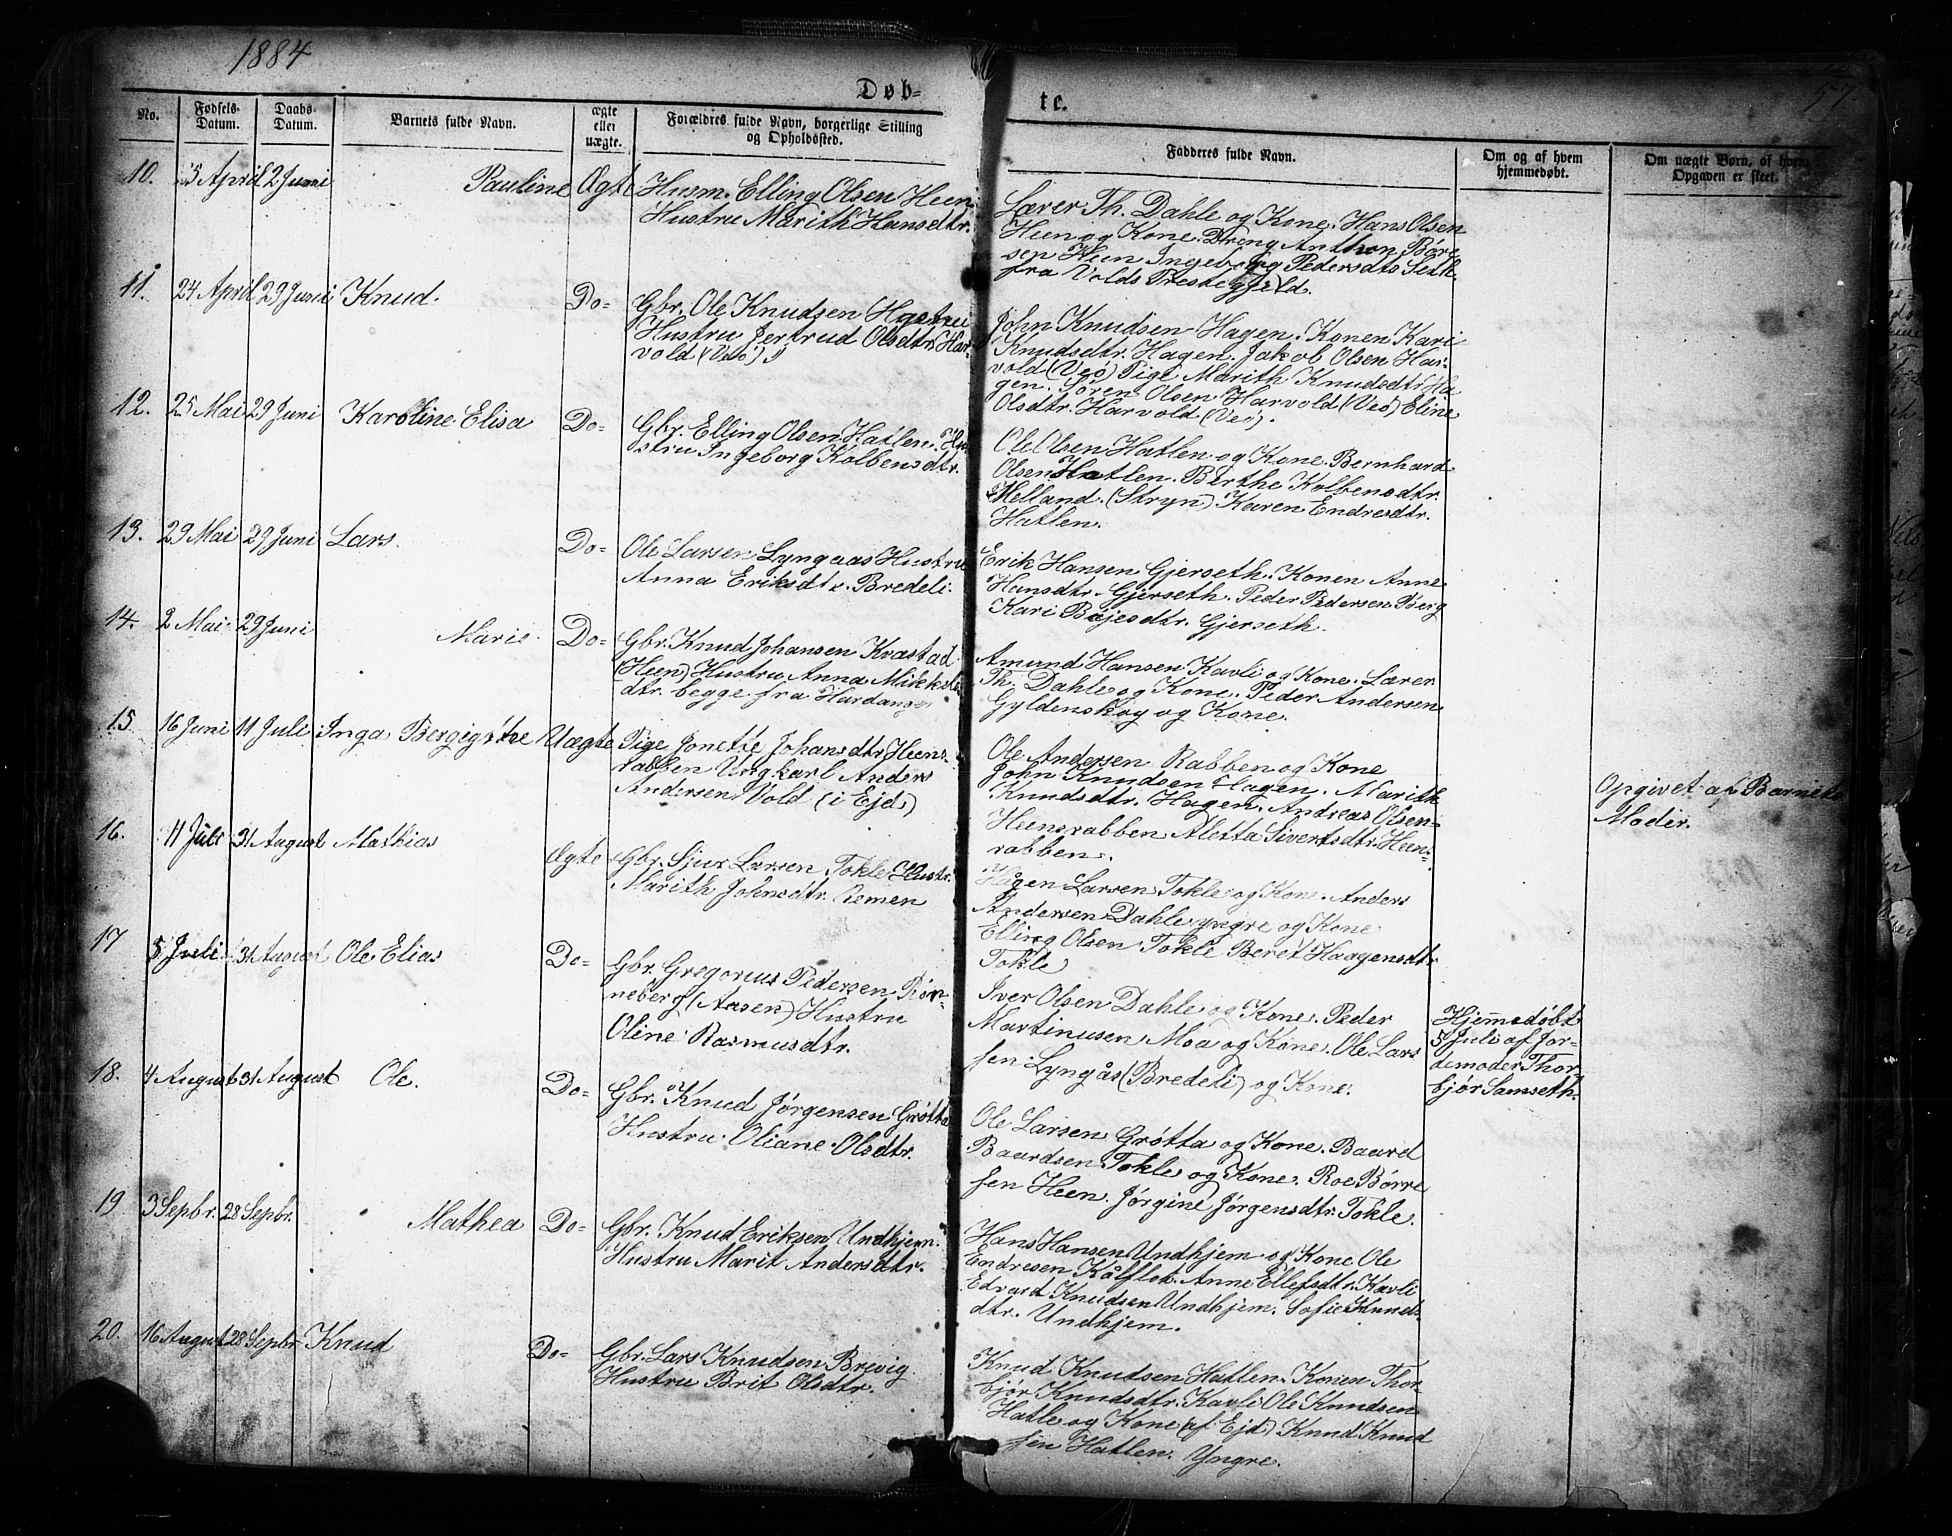 1884
57
Døb-
te.
No.
Fødsels-
Datum.
Daabs-
Datum.
Barnets fulde Navn.
ægte
eller
uægte.
Forældres fulde Navn, borgerlige Stilling
og Opholdssted.
Fadderes fulde Navn.
Om og af hvem
hjemmedøbt.
Om uægte Børn, af hvem
Opgaven er skeet.
10. 3 April 2 Juni Pauline Ægte
Husm. Elling Olsen Heen
Hustru Marith Hansdtr.
Lærer Th. Dahle og Kone. Hans Olsen
Heen og Kone. Dreng Anthon Børe
sen Heen Ingeborg Pedersdtr Seth
fra Volds Prestegjeld.
11. 24 April 29 Juni Knud. Do=
Gbr. Ole Knudsen
Hustru Jertrud Olsdtr. Har-
vold (Veø)
John Knudsen Hagen. Konen Kari
Knudsdtr. Hagen. Jakob Olsen Har-
vold (Veø) Pige Marith Knudsdtr. Ha
gen. Søren Olsen Harvold (Veø) Eline
Olsdtr. Harvold (Veø).
12. 25 Mai 29 Juni Karoline Elisa Do=
Gbr. Elling Olsen Hatlen. Hu-
stru Ingeborg Kolbensdtr.
Ole Olsen Hatlen og Kone. Bernhard
Olsen Hatlen. Berthe Kolbensdtr.
Helland. (Stryn) Karen Endresdtr.
Hatlen.
13. 29 Mai 29 Juni Lars. Do=
Ole Larsen Lyngaas Hustru
Anna Eriksdtr. Bredeli.
Erik Hansen Gjerseth. Konen Anne
Hansdtr. Gjerseth. Peder Pedersen Berg
Kari Bøjesdtr. Gjerseth.
14. 2 Mai 29 Juni Marie. Do=
Gbr. Knud Johansen Kvastad
(Heen) Hustru Anna Mikkels
dtr. begge fra Hardanger
Amund Hansen Kavli og Kone. Lærer
Th. Dahle og Kone. Peder Andersen
Gyldenskog og Kone.
15 16 Juni 11 Juli Inga Bergigøthe Uægte
Pige Jonette Johansdtr. Heens-
rabben Ungkarl Anders
Andersen Vold (i Ejd)
Ole Andersen Rabben og Kone
John Knudsen Hagen. Marith
Knudsdtr. Hagen. Andreas Olsen
Heensrabben Aletta Sivertsdtr. Heens-
rabben.
Opgivet af Barnets
Moder.
16. 11 Juli 31 August Mathias Ægte
Gbr. Sjur Larsen Tokle Hustr.
Marith Johnsdtr. Remen
Hågen Larsen Tokle og Kone. Anders
Andersen Dahle yngre og Kone
Elling Olsen Tokle Beret Haagensdtr
Tokle
17 5 Juli 31 August Ole Elias Do=
Gbr. Gregorius Pedersen Røn-
neberg (Aasen) Hustru
Oline Rasmusdtr.
Iver Olsen Dahle og Kone. Peder
Martinusen Moa og Kone. Ole Lars
sen Lyngås (Bredeli) og Kone.
Hjemmedøbt
5 Juli af Jor-
demoder Thor-
bjør Samseth.
18. 4 August 31 August Ole. Do=
Gbr. Knud Jørgensen Grøtta
Hustru Oliane Olsdtr.
Ole Larsen Grøtta og Kone. Baard
Baardsen Tokle og Kone. Roe Børre
sen Heen. Jørgine Jørgensdtr. Tokle.
19 3 Sepbr. 28 Sepbr. Mathea Do=
Gbr. Knud Eriksen Undhjem.
Hustru Marit Andersdtr.
Hans Hansen Undhjem og Kone Ole
Endresen Kålflot. Anne Ellefsdtr. Kavli
Edvard Knudsen Undhjem. Sofie Knuds-
dtr. Undhjem.
20. 16 August 28 Sepbr. Knud Do=
Gbr. Lars Knudsen Brevig
Hustru Brit Olsdtr.
Knud Knudsen Hatlen. Konen Thor-
bjør Knudsdtr. Kavli Ole Knudsen
Hatle og Kone (af Ejd) Knud Knud
sen Hatlen. Yngre.